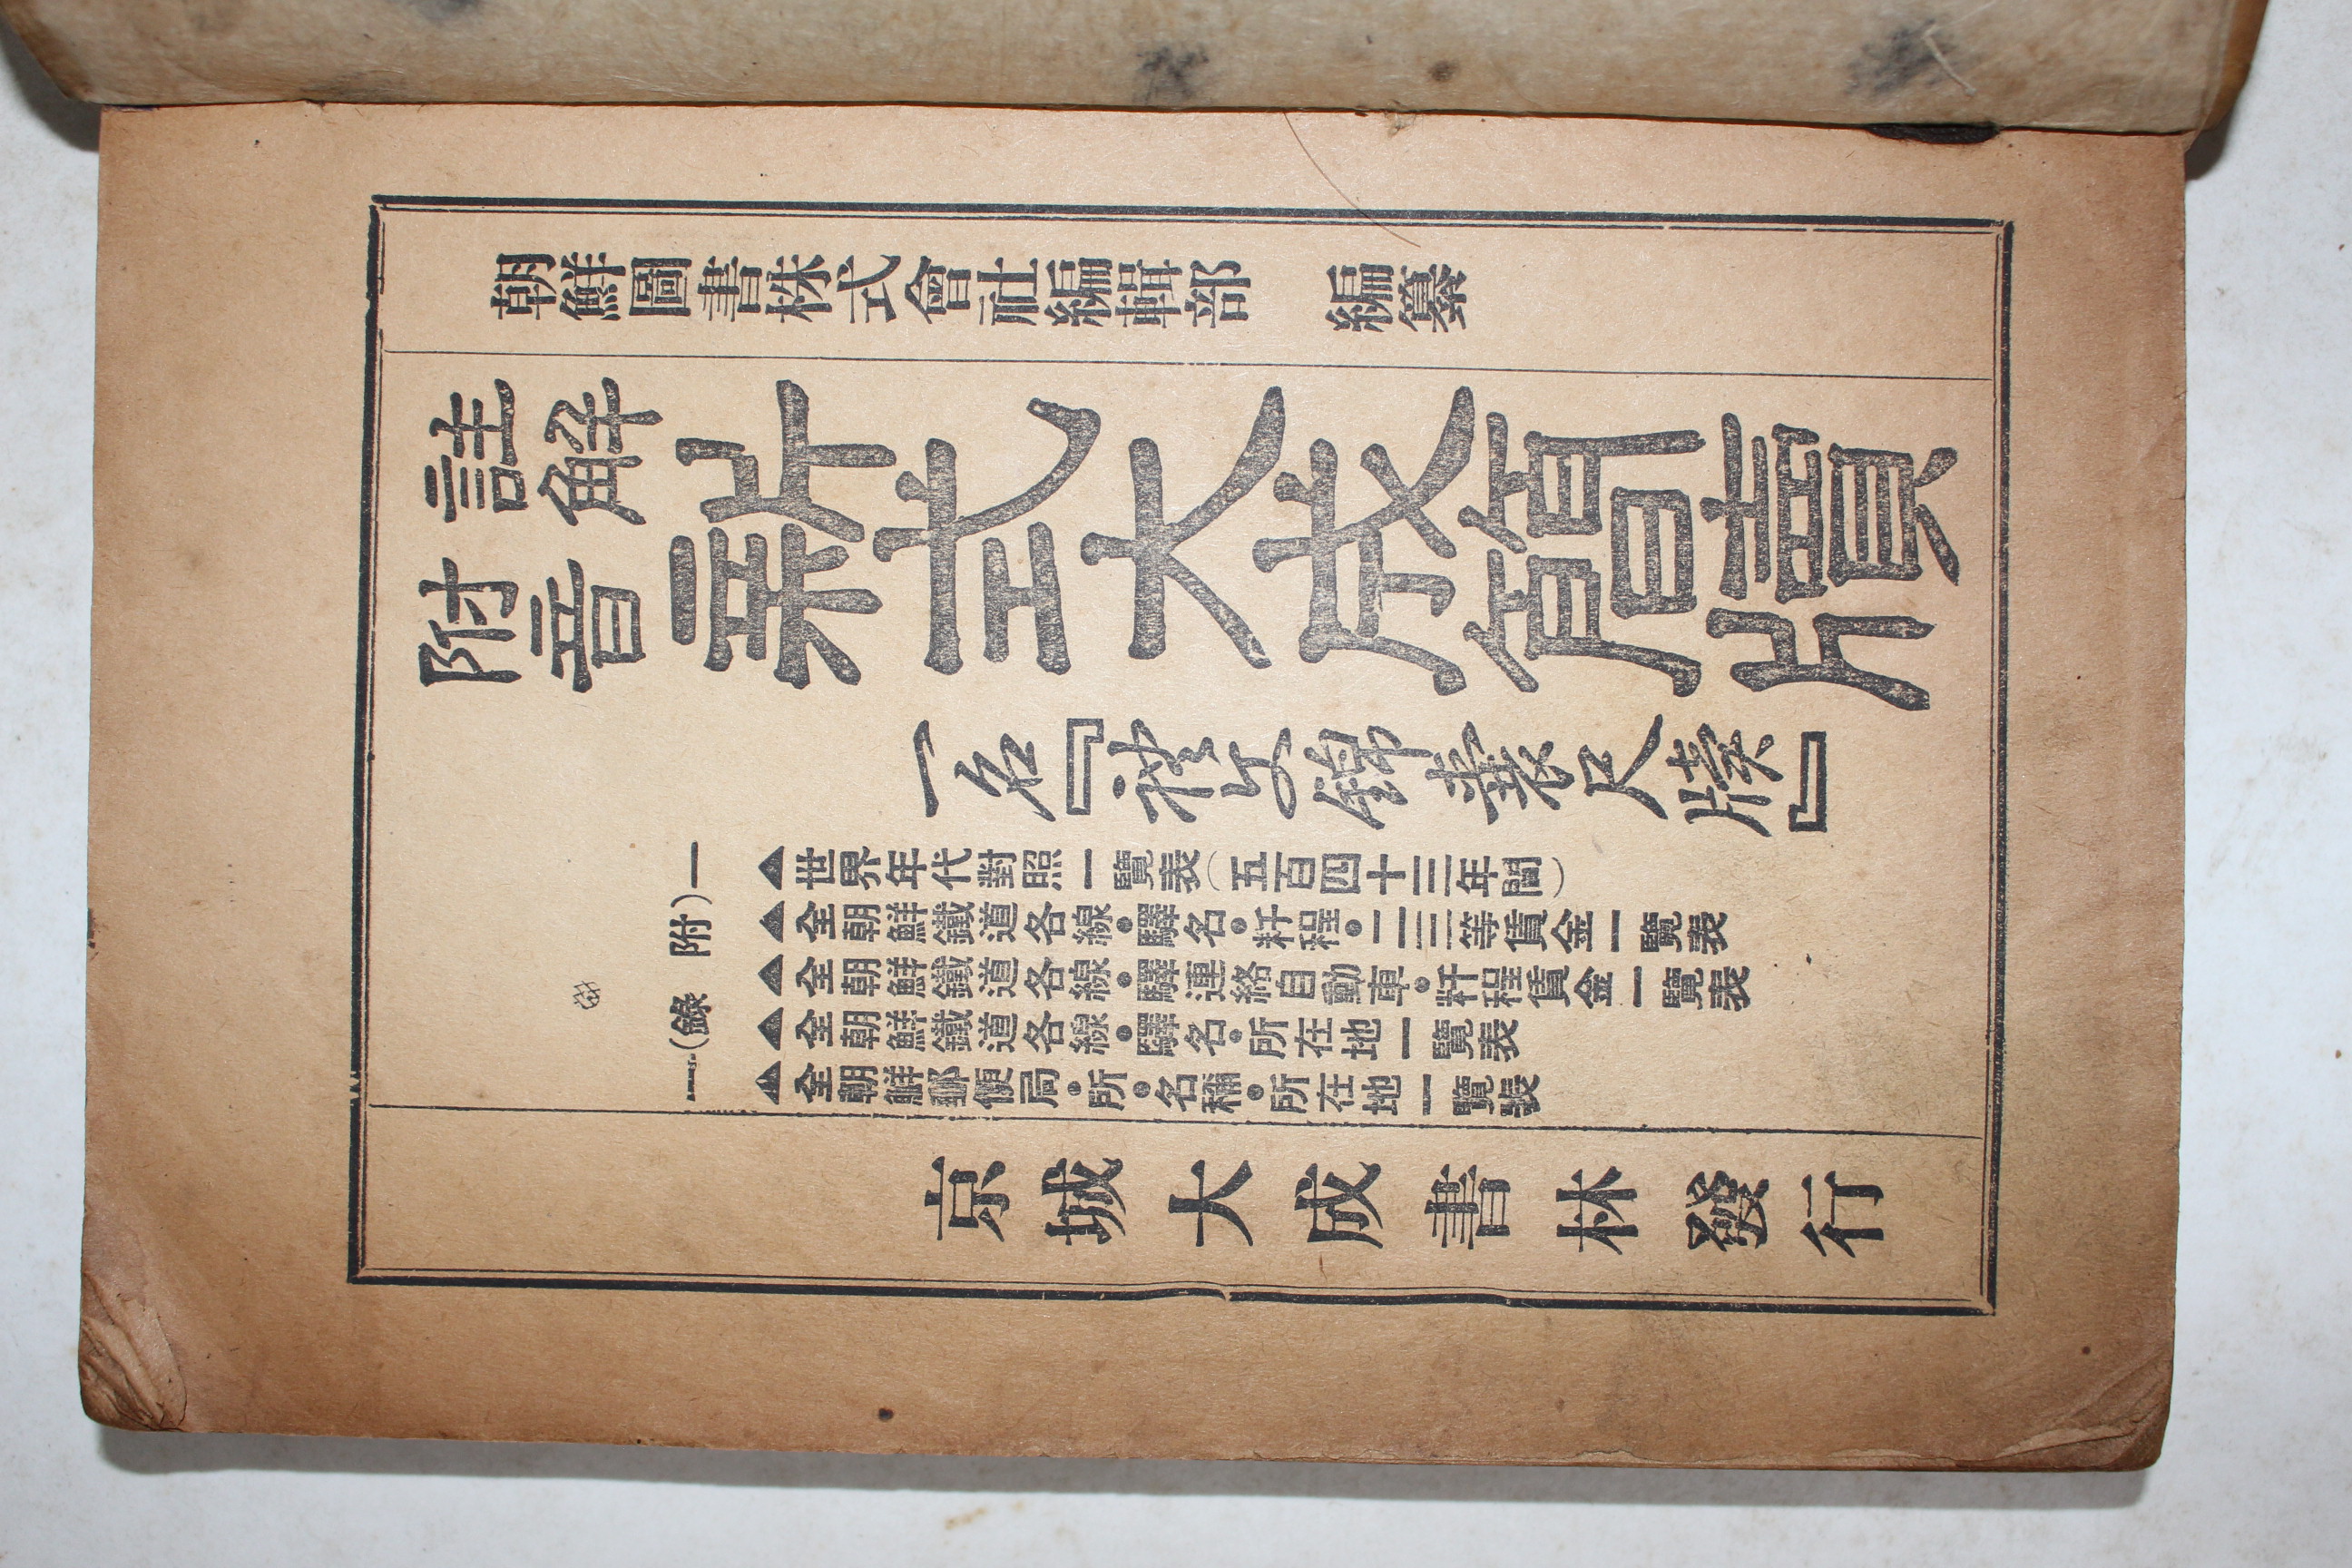 朝鮮圖書株式會社編輯部 編纂
註解
附音
新式大成簡牘
一名『社交錦囊尺牘』
―(附錄)―
▲世界年代對照一覽表(五百四十三年間)
▲全朝鮮鐵道各線●驛名●粁程●二三等賃金一覽表
▲全朝鮮鐵道各線●驛連絡自動車●粁程賃金一覽表
▲全朝鮮鐵道各線●驛名●所在地一覽表
▲全朝鮮郵便局●所●名稱●所在地一覽表
京城大成書林發行